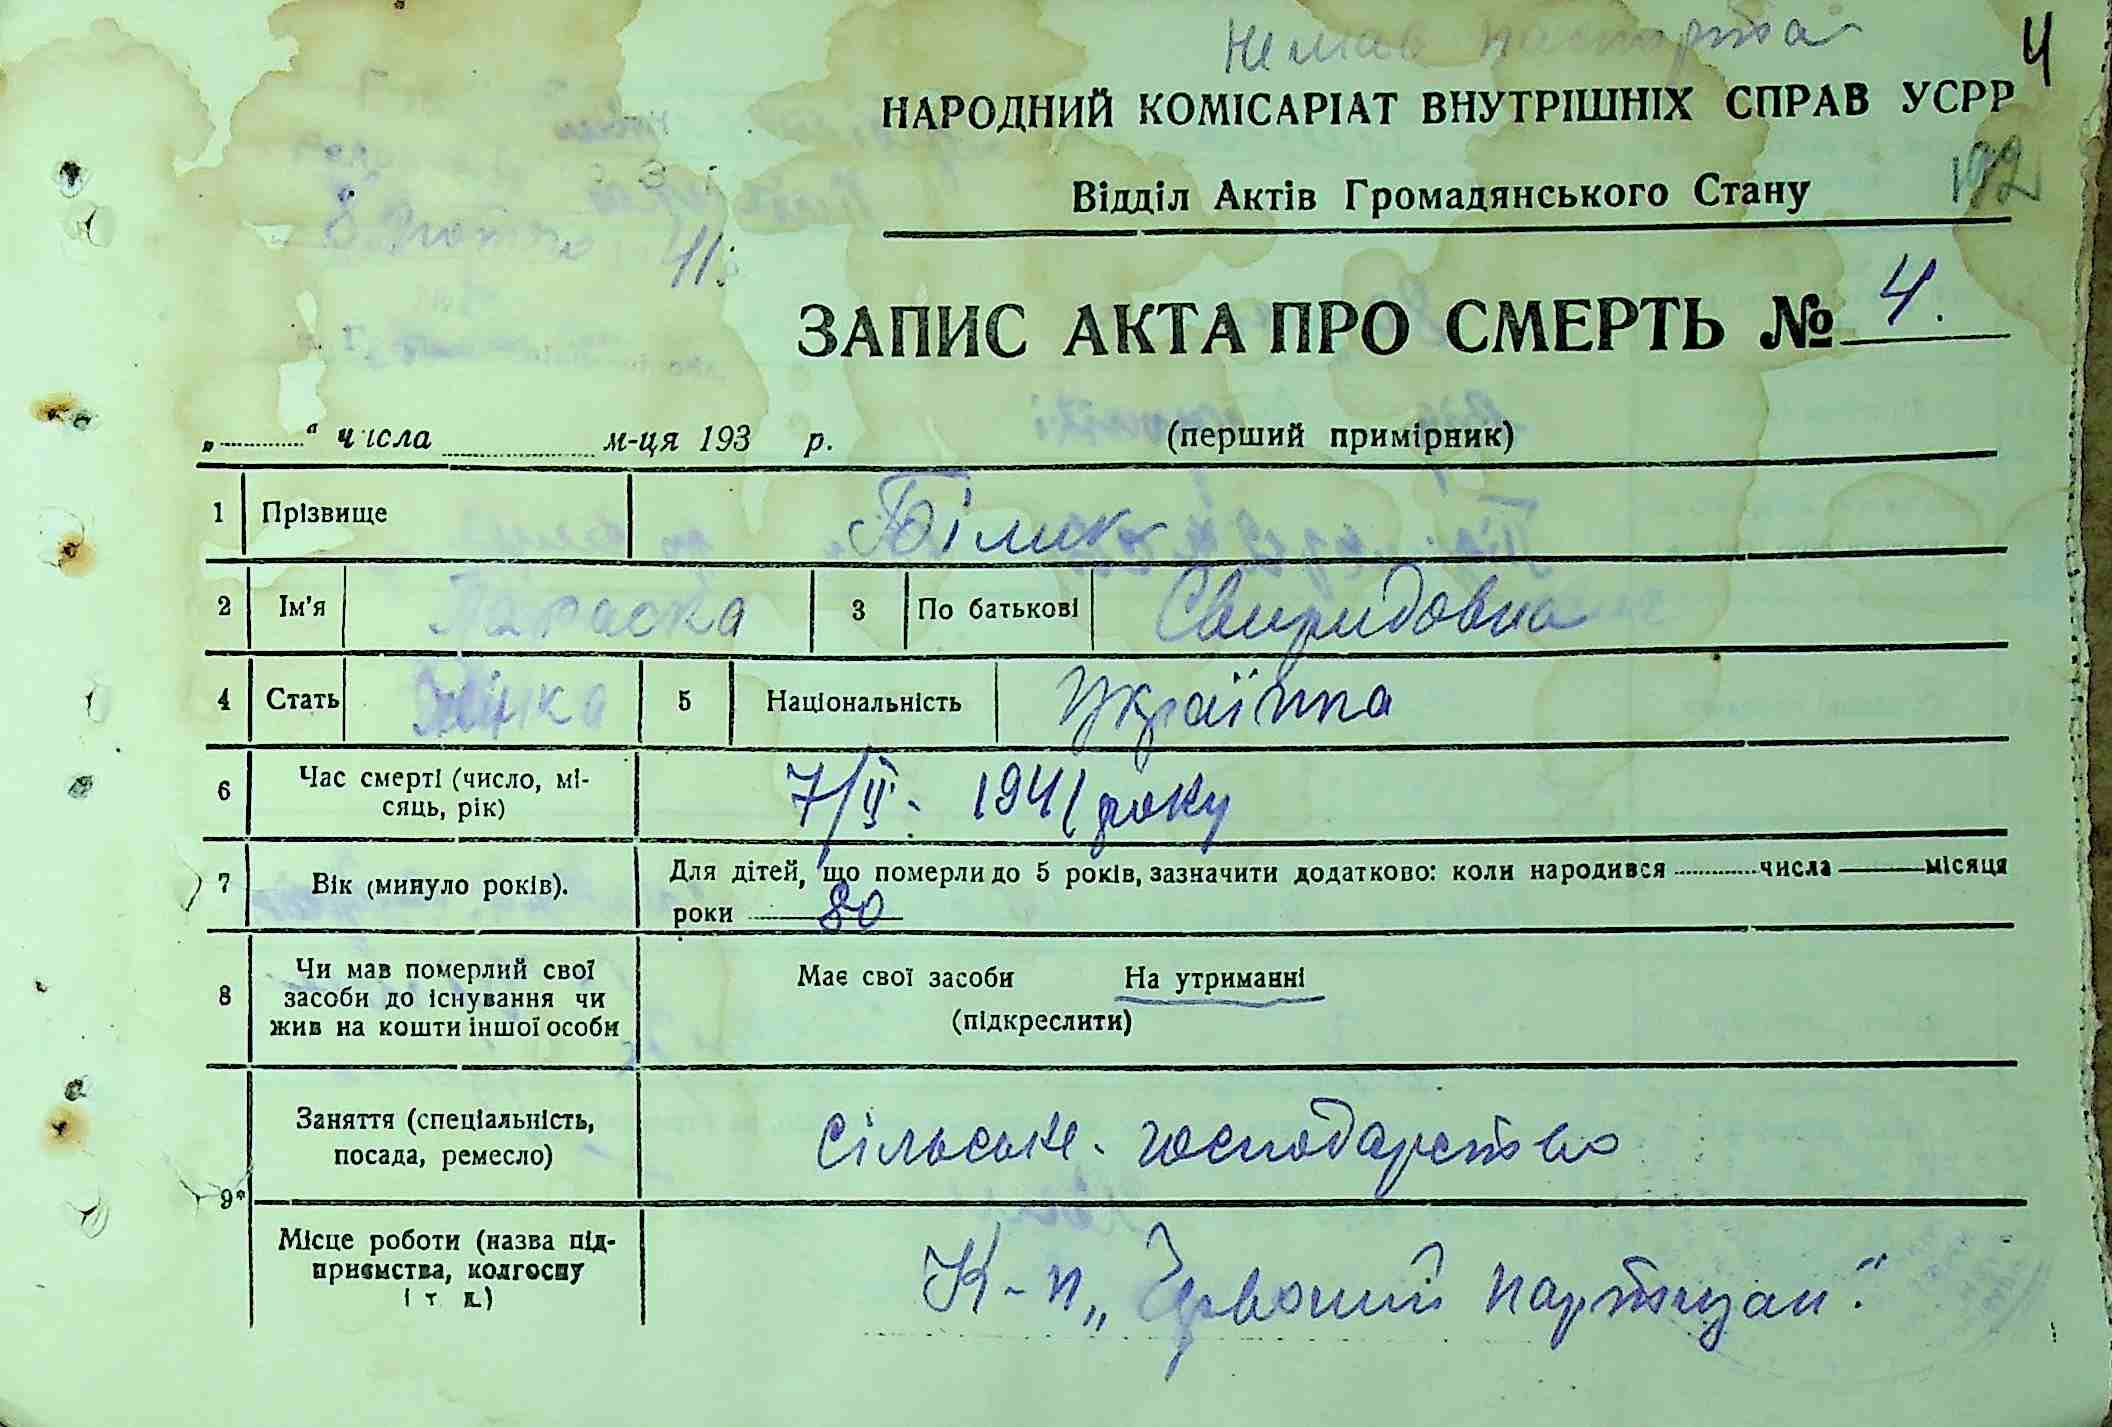 Не мав паспорта 4
НАРОДНИЙ КОМІСАРІАТ ВНУТРІШНІХ СПРАВ УСРР
192
Відділ Актів Громадянського Стану
ЗАПИС АКТА ПРО СМЕРТЬ № 4.
„ “ числа м-ця 193 р. (перший примірник)
1 Прізвище Білик
2 Ім'я Параска 3 По батькові Свиридовна
4 Стать Жінка 5 Національність Українка
6 Час смерті (число, мі-
сяць, рік) 7/ІІ. 1941 року
7 Вік (минуло років). Для дітей, що померли до 5 років, зазначити додатково: коли народився числа місяця
роки 80
8 Чи мав померлий свої
засоби до існування чи
жив на кошти іншої особи
Має свої засоби На утриманні
(підкреслити)
9*
Заняття (спеціальність,
посада, ремесло)
сільське. господарство
Місце роботи (назва під-
приємства, колгоспу
і т д.)
К-п „Червоний партизан“.